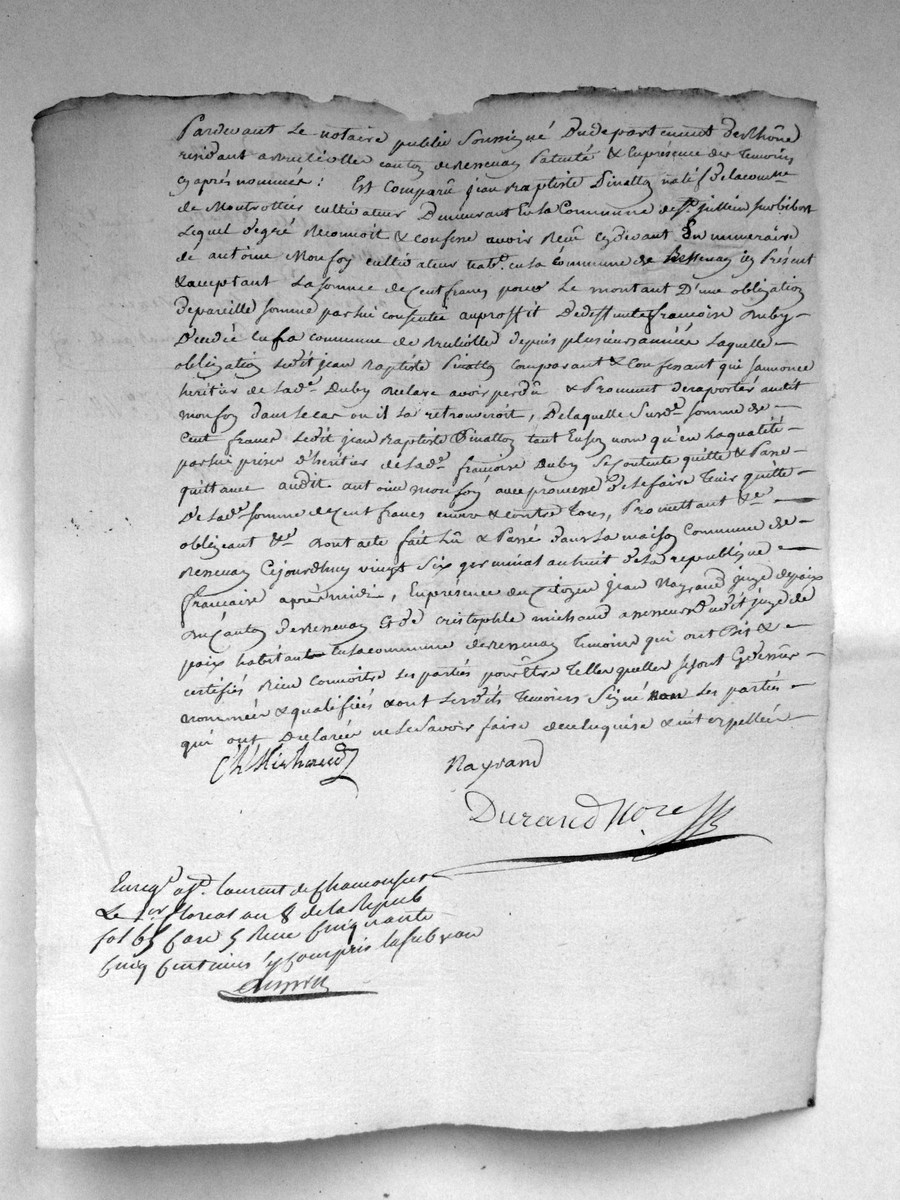 Pardevant Le notaire public Soussigné Du departement du Rhône
residant a Brulliolle canton de Bessenay Patenté & En presence des Temoins
cy après nommés : Est Comparû jean Baptiste Pinatton natif de la comne
de Montrottier cultivateur Demeurant En La Commune de St jullien sur bibost
Lequel de gré Reconnoit & confesse avoir Reçu cy devant En numeraire
de antoine Monfoy cultivateur habt en la commune de Bessenay icy Présent
& acceptant La somme de Cent francs pour Le montant D'une obligation
de pareille somme par lui consentie au proffit De deffunte francoise Duby
Décédée en sa commune de Brulliolle depuis plusieurs années Laquelle
obligation Ledit jean Baptiste Pinatton comparant & Confessant qui
heritier de lade Duby declare avoir perdu & Proment de raporter audit
monfoy dans le cas ou il La retrouveroit, De laquelle Susde somme de
Cent francs Ledit jean Baptiste Pinatton tant En son nom qu'en la qualité
par lui prise d'heritier de lade francoise Duby Se contente quitte & Passe
quittance audit antoine monfoy avec promesse de le faire tenir quitte
De lade somme de Cent francs envers & contre tous, Promettant &c
obligeant &c dont acte fait Lû & Passé dans La maison Commune de
Bessenay Cejourdhuy vingt Six germinal an huit de la republique
francaise après midi, En presence du Citoyen jean Nayrand juge de paix
du Canton de Bessenay Et de cristophle michaud assesseur dudit juge de
paix habitants En la commune de Bessenay Temoins qui ont Dit &
certifiés Bien connoitre Les parties pour Etre Telles quelles Se sont Cy dessus
nommées & qualifiées & ont Lesdits temoins Signé non Les parties
qui ont Declarées ne Le Savoir faire de ce Enquise & interpellées
Ch Michaud Nayrand
Durand Nore
Enregé a St Laurent de Chamousset
Le 1er floreal an 8 de la Repub
fol 65 Case 5 Recu Cinquante
Cinq Centimes y compris la subvon